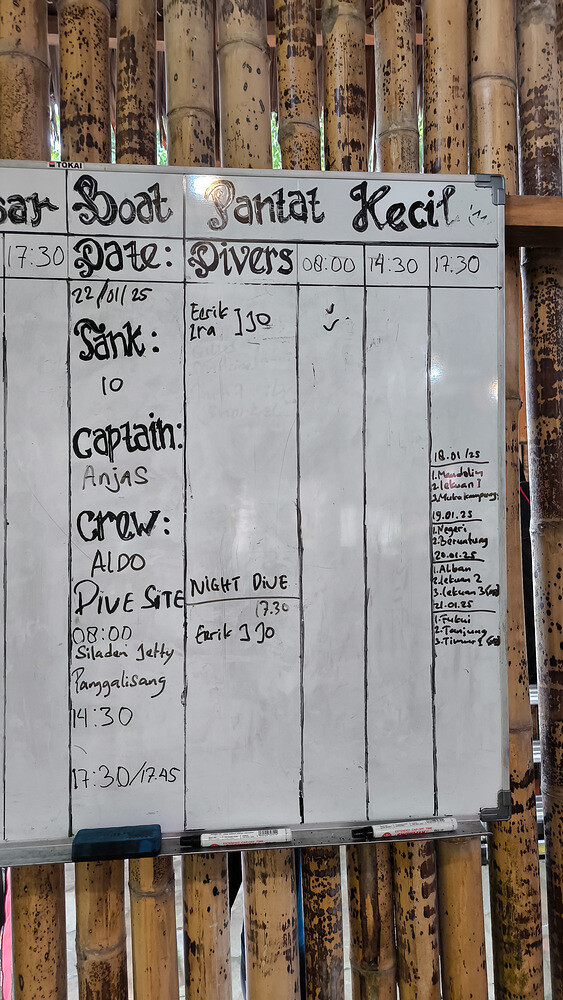 TOKAI
sar Boat Pantat Kecil
17:30 Date: Divers 08:00 14:30 17.30
22/01/25
Eerik ] JO
Ira
Sank:
10
Captain:
Anjas
Crew:
ALDO
DIVE SITE
08:00
Siladen Jetty
Panggalisang
14:30
17:30/17.45
NIGHT DIVE
17.30
Eerik ] JO
18.01/25
1. Mandolin
2. lekuan 1
3. Mutra kampung
19.01.25
1. Negeri
2. Beruatung
20.01.25
1. Alban
2. lekuan 2
3. lekuan 3
21.01.25
1. Fukui
2. Tanjung
3. Timur 1